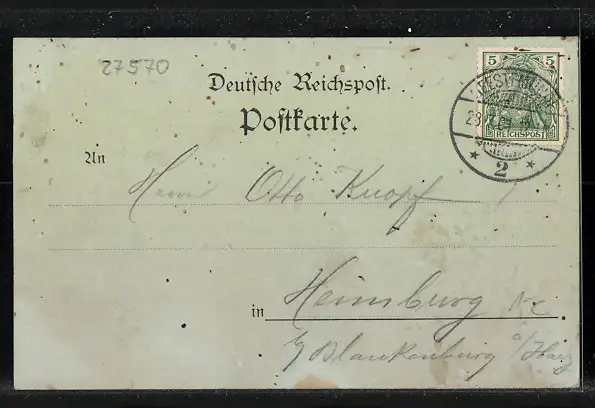 27570
5 5
REICHSPOST
2
Deutsche Reichspost.
Postkarte.
An
Herrn Otto Knopf
in Heimburg
Blankenburg a/Harz